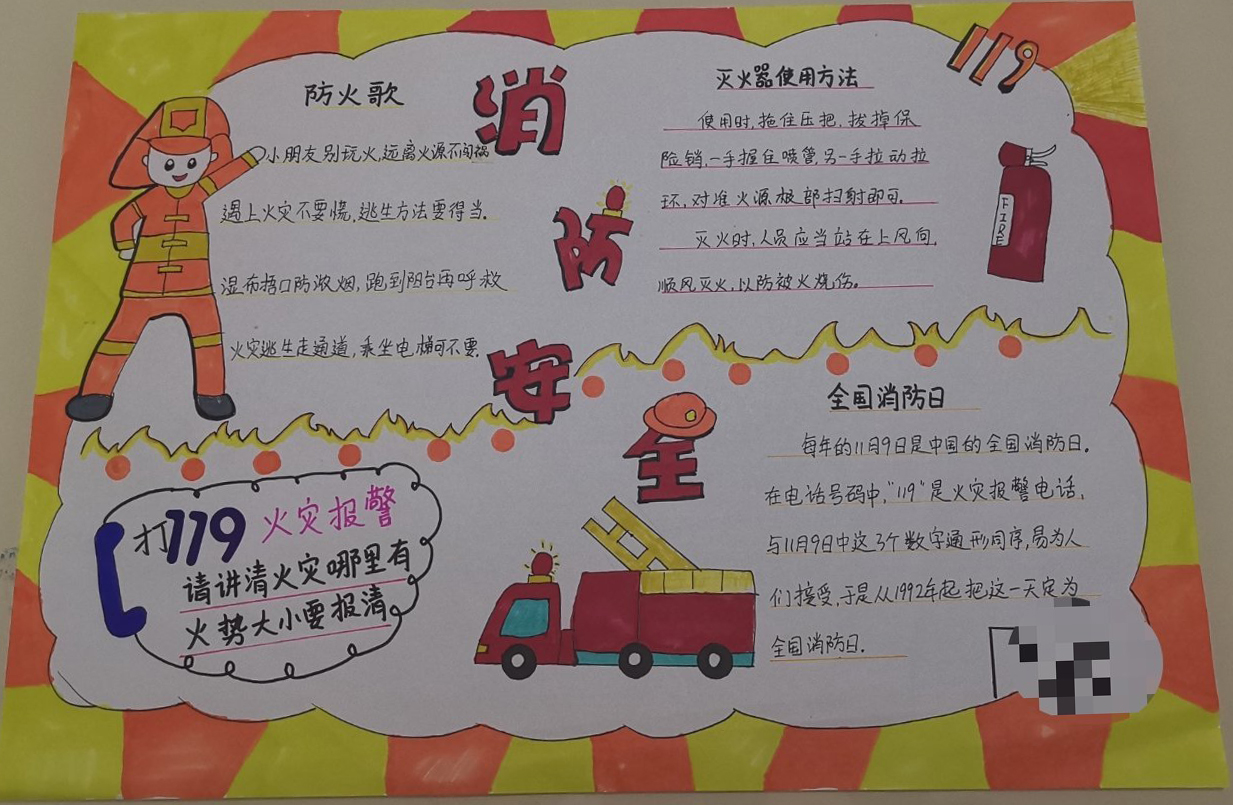 消
防
安
全
119
防火歌
小朋友别玩火,远离火源不闯祸
遇上火灾不要慌,逃生方法要得当.
湿布捂口防浓烟,跑到阳台再呼救
火灾逃生走通道,乘坐电梯可不要.
灭火器使用方法
使用时,拖住压把,拔掉保
险销,一手握住喷管,另一手拉动拉
环,对准火源根部扫射即可.
灭火时,人员应当站在上风向,
顺风灭火,以防被火烧伤。
FIRE
打119火灾报警
请讲清火灾哪里有
火势大小要报清
全国消防日
每年的11月9日是中国的全国消防日.
在电话号码中,"119"是火灾报警电话,
与11月9日中这3个数字通形同序,易为人
们接受,于是从1992年起把这一天定为
全国消防日.